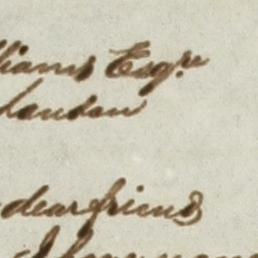 lliams Esqre
London
dear friend
I have